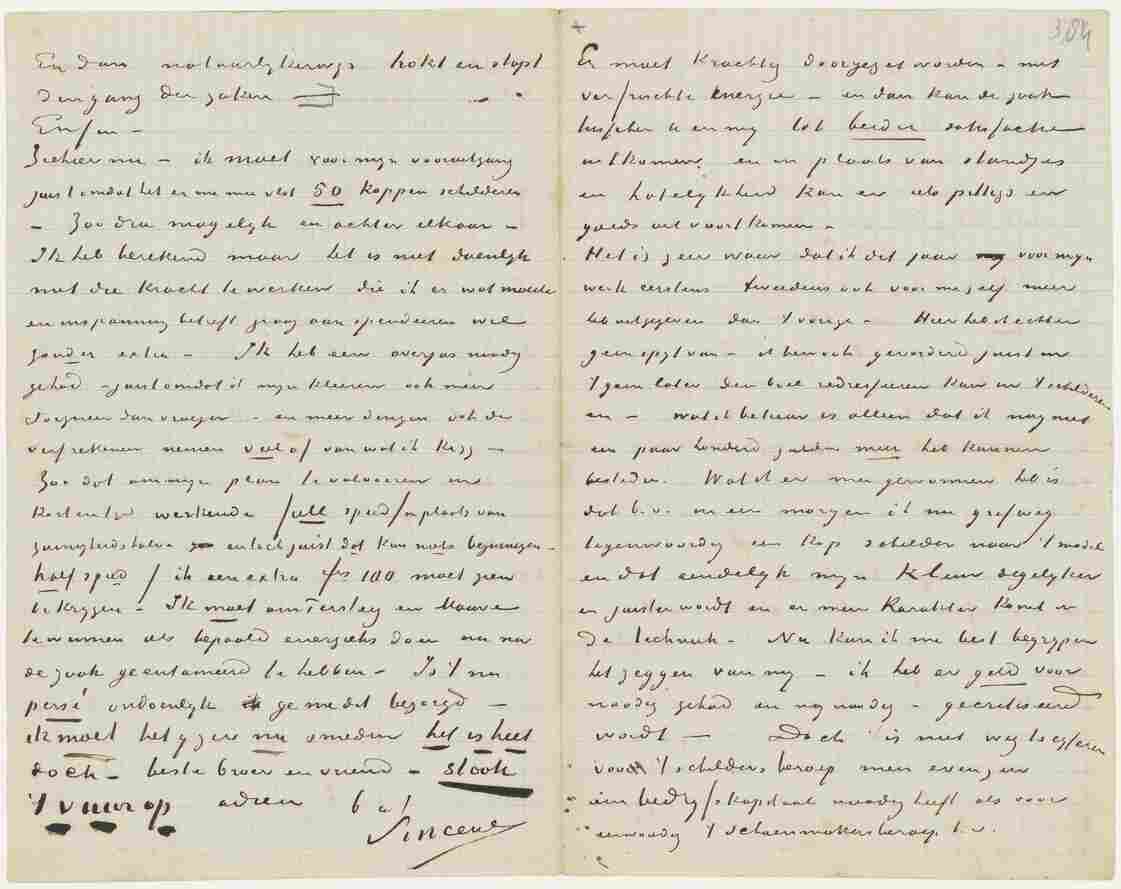 En dan natuurlijkerwijs hokt en stopt
de gang der zaken
Enfin —
Ziehier nu — ik moet voor mijn vooruitgang
juist omdat het er nu mee vlot 50 koppen schilderen
— Zoodra mogelijk en achter elkaar —
Ik heb berekend maar het is niet doenlijk
met die kracht te werken die ik er wat moeite
en inspanning betreft graag aan spendeeren wil
zonder extra — Ik heb een overjas noodig
gehad — juist omdat ik mijn kleeren ook niet
vroeger — en meer dingen ook de
verfrekening nemen veel af van wat ik krijg —
Zoo dat om mijn plan te volvoeren in
korten tyd werkende full speed/in plaats van
zuinigheidshalve en toch juist dat kan niets bezuinigen —
half speed / ik een extra frs 100 moet zien
te krijgen — Ik moet om Tersteeg en Mauve
te winnen iets bepaald energieks doen om nu
de zaak geentameerd te hebben — Is 't nu
persé ondoenlijk gemadst bezorgd —
ik moet het ijzer nu smeden het is heet
doch — beste broer en vriend — stook
't vuur op adieu b à t
Vincent
384
Er moet krachtig doorgezet worden — met
verfrischte energie — en dan kan de zaak
tusschen u en mij tot beider satisfactie
uitkomen, en in plaats van standjes
en hatelijkheid kan er iets pittigs en
goeds uit voortkomen —
Het is zeer waar dat ik dit jaar voor mijn
werk eerstens tweedens ook voor mezelf meer
heb uitgegeven dan 't vorige — Hier heb ik echter
geen spijt van — ik ben ook gevorderd juist in
't geen later den boel redresseeren kan in 't schilderen
en — wat ik betreur is alleen dat ik nog niet
een paar honderd gulden meer heb kunnen
besteden. Wat ik er mee gewonnen heb is
dat b.v. in een morgen ik nu grifweg
tegenwoordig een kop schilder naar 't model
en dat eindelijk mijn kleur degelijker
en juister wordt en er meer karakter komt in
de techniek — Nu kan ik me best begrijpen
het zeggen van mij — ik heb er geld voor
noodig gehad en nog noodig — gecritiseerd
wordt — Doch is niet weg te cijferen
voor 't schildersberoep men evenzeer
een bedrijfskapitaal noodig heeft als voor
eenvoudig 't schoenmakersberoep b.v.